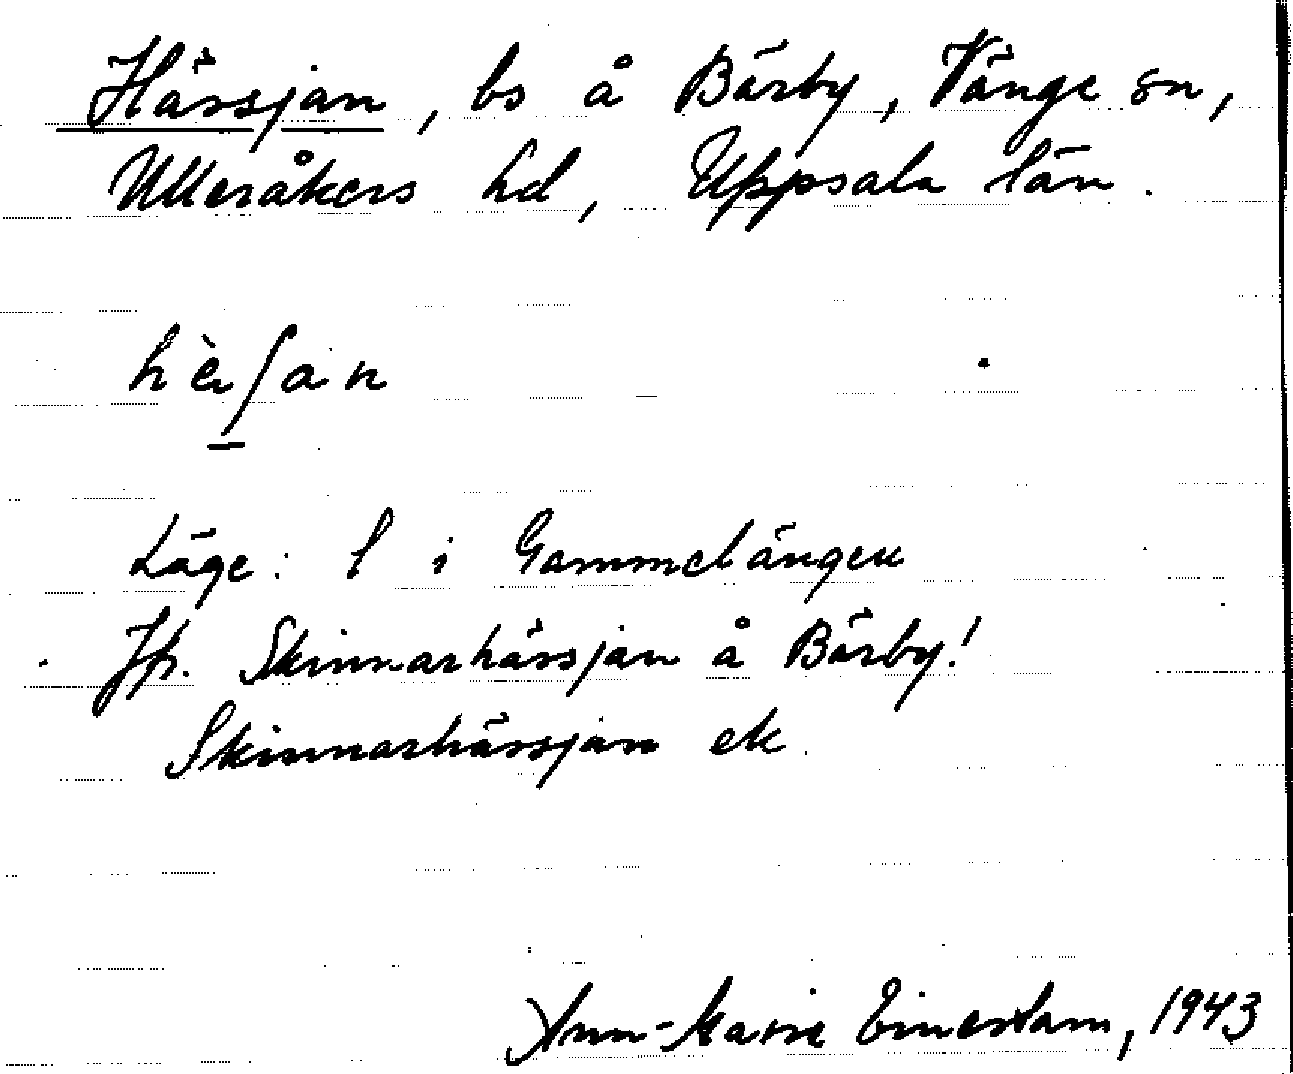 Hässjan, bs å Bärby, Vänge sn,
Ulleråkers hd, Uppsala län.
Läge: l i Gammelängen
Jfr. Skinnarhässjan å Bärby!
Skinnarhässjan ek.
Ann-Marie, 1943